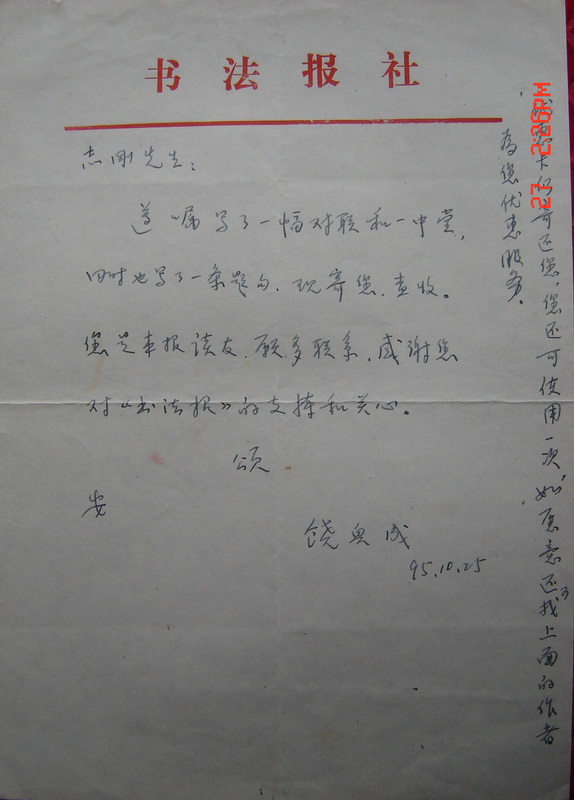 书法报社
志刚先生：
遵嘱写了一幅对联和一中堂，
同时也写了一条题句，现寄您，查收。
您是本报读友，愿多联系，感谢您
对《书法报》的支持和关心。
颂
安
饶兴成
95.10.25
卡仍寄还您，您还可使用一次，如愿意还可找上面的作者
为您优惠服务。
27 2:26PM